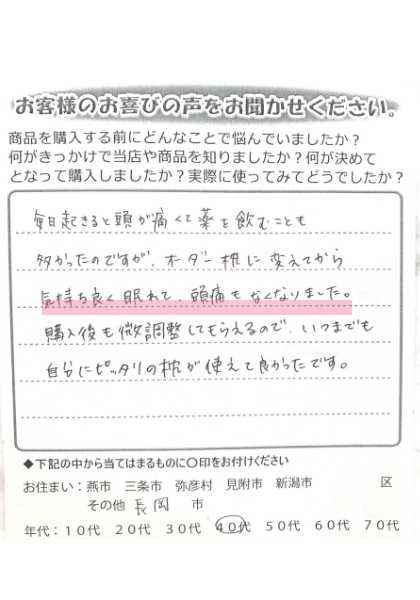 お客様のお喜びの声をお聞かせください。
商品を購入する前にどんなことで悩んでいましたか？
何がきっかけで当店や商品を知りましたか？何が決めて
となって購入しましたか？実際に使ってみてどうでしたか？
毎日起きると頭が痛くて薬を飲むことも
多かったのですが、オーダー枕に変えてから
気持ち良く眠れて、頭痛もなくなりました。
購入後も微調整してもらえるので、いつまでも
自分にピッタリの枕が使えて良かったです。
◆下記の中から当てはまるものに〇印をお付けください
お住まい：燕市 三条市 弥彦村 見附市 新潟市 区
その他 長岡 市
年代：１０代 ２０代 ３０代 ４０代 ５０代 ６０代 ７０代